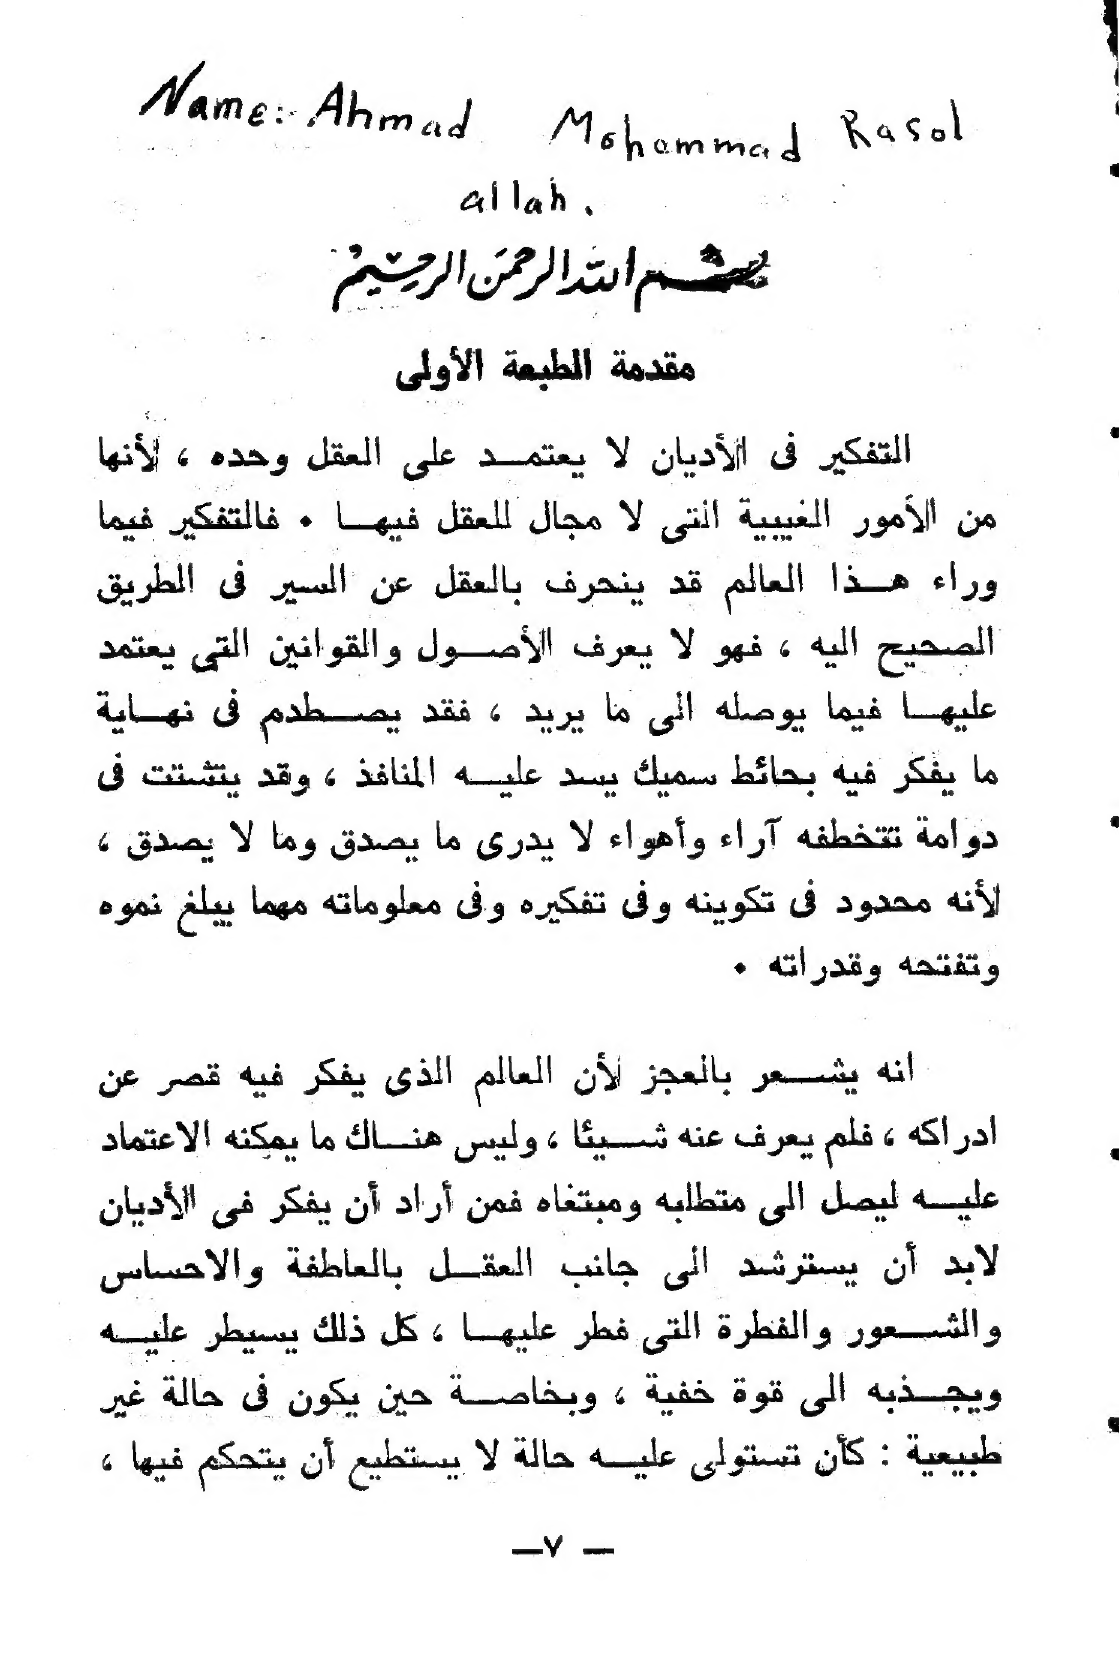 Name: Ahmad Mohammad Rasol
allah.
بسم الله الرحمن الرحيم
مقدمة الطبعة الأولى
التفكير فى الأديان لا يعتمــد على العقل وحده ، لأنها
من الأمور الغيبية التى لا مجال للعقل فيهــا ٠ فالتفكير فيما
وراء هــذا العالم قد ينحرف بالعقل عن السير فى الطريق
الصحيح اليه ، فهو لا يعرف الأصــول والقوانين التى يعتمد
عليهــا فيما يوصله الى ما يريد ، فقد يصــطدم فى نهــاية
ما يفكر فيه بحائط سميك يسد عليــه المنافذ ، وقد يتشتت فى
دوامة تتخطفه آراء وأهواء لا يدرى ما يصدق وما لا يصدق ،
لأنه محدود فى تكوينه وفى تفكيره وفى معلوماته مهما يبلغ نموه
وتفتحه وقدراته ٠
انه يشــعر بالعجز لأن العالم الذى يفكر فيه قصر عن
ادراكه ، فلم يعرف عنه شــيئا ، وليس هنــاك ما يمكنه الاعتماد
عليــه ليصل الى متطلبه ومبتغاه فمن أراد أن يفكر فى الأديان
لابد أن يسترشد الى جانب العقــل بالعاطفة والاحساس
والشــعور والفطرة التى فطر عليهــا ، كل ذلك يسيطر عليــه
ويجــذبه الى قوة خفية ، وبخاصــة حين يكون فى حالة غير
طبيعية : كأن تستولى عليــه حالة لا يستطيع أن يتحكم فيها ،
— ٧—